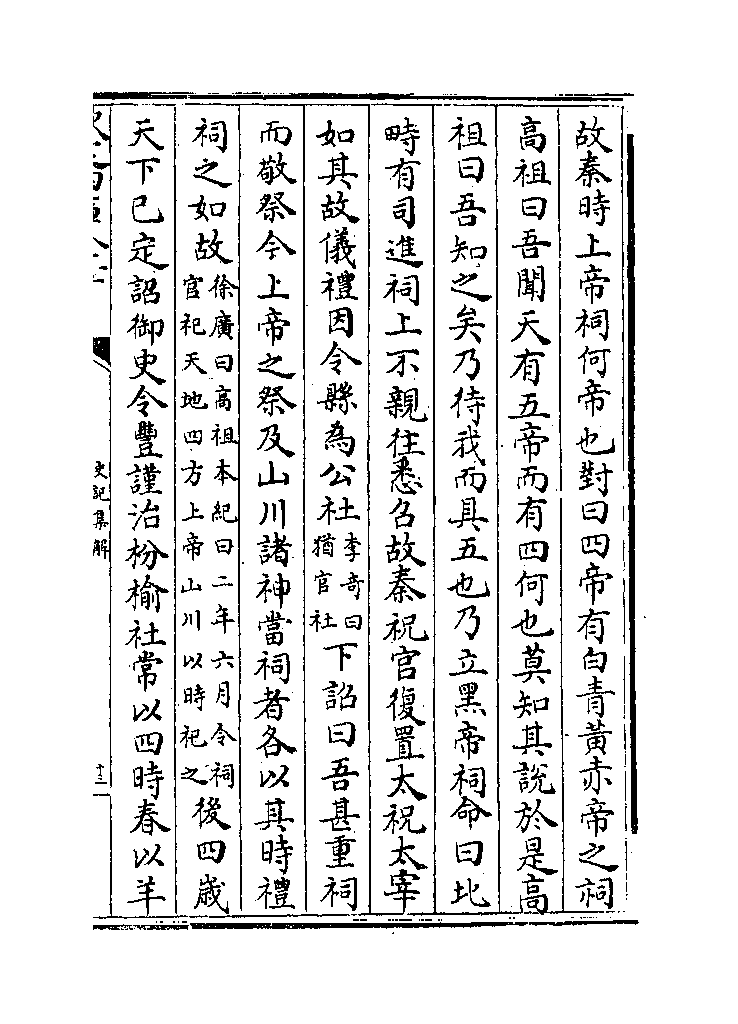 故秦時上帝祠何帝也對曰四帝有白青黃赤帝之祠
高祖曰吾聞天有五帝而有四何也莫知其說於是高
祖曰吾知之矣乃待我而具五也乃立黑帝祠命曰北
畤有司進祠上不親往悉召故秦祝官復置太祝太宰
如其故儀禮因令縣為公社李奇曰猶官社下詔曰吾甚重祠
而敬祭今上帝之祭及山川諸神當祠者各以其時禮
祠之如故徐廣曰高祖本紀曰二年六月令祠官祀天地四方上帝山川以時祀之後四歲
天下已定詔御史令豐謹治枌榆社常以四時春以羊
史記集解
十三